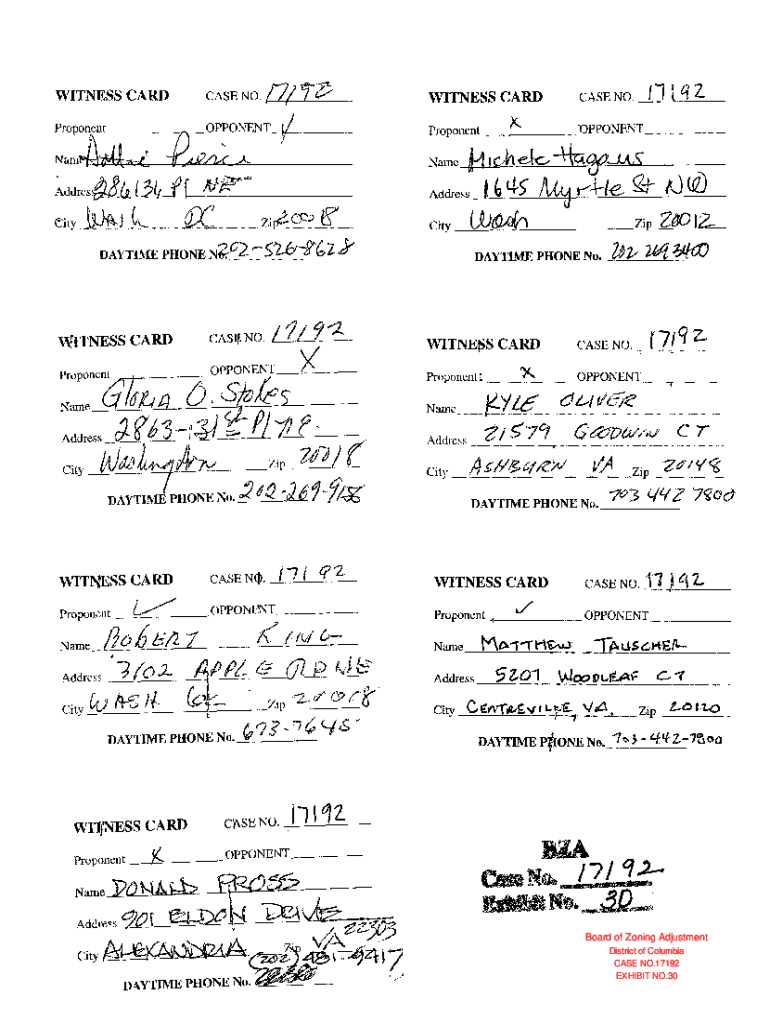 WITNESS CARD CASE NO. 17192
Proponent OPPONENT ✓
Name Pierce
Address 2861 34 Pl NE
City Wash DC Zip 20018
DAYTIME PHONE No. 202-526-8628
WITNESS CARD CASE NO. 17192
Proponent X OPPONENT
Name Michele Hagans
Address 1645 Myrtle St NW
City Wash Zip 20012
DAYTIME PHONE No. 202 269 3400
WITNESS CARD CASE NO. 17192
Proponent OPPONENT X
Name Gloria O. Stokes
Address 2863-31st Pl n.e.
City Washington Zip 20018
DAYTIME PHONE No. 202-269-9158
WITNESS CARD CASE NO. 17192
Proponent X OPPONENT
Name KYLE OLIVER
Address 21579 GOODWIN CT
City ASHBURN VA Zip 20148
DAYTIME PHONE No. 703 442 7800
WITNESS CARD CASE NO. 17192
Proponent ✓ OPPONENT
Name ROBERT KING
Address 3102 APPLE RD NE
City WASH Zip 20018
DAYTIME PHONE No. 673-7645
WITNESS CARD CASE NO. 17192
Proponent ✓ OPPONENT
Name MATTHEW TAUSCHER
Address 5207 WOODLEAF CT
City CENTREVILLE, VA. Zip 20120
DAYTIME PHONE No. 703-442-7800
WITNESS CARD CASE NO. 17192
Proponent X OPPONENT
Name DONALD PROSS
Address 901 ELDON DRIVE
City ALEXANDRIA Zip VA 22303
(202) 481-9417
DAYTIME PHONE No.
BZA
Case No. 17192
Exhibit No. 30
Board of Zoning Adjustment
District of Columbia
CASE NO.17192
EXHIBIT NO.30